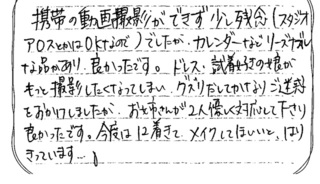 携帯の動画撮影ができず少し残念(スタジオ
アロスとかはOKなので)でしたが、カレンダーなどリーズナブル
な品があり、良かったです。ドレス、試着好きの娘が
もっと撮影したくなってしまい、グズりだしてかなりご迷惑
をおかけしましたが、お姉さんが2人優しく対応して下さり
良かったです。今度は12着きて、メイクしてほしいと、はり
きっています…♪